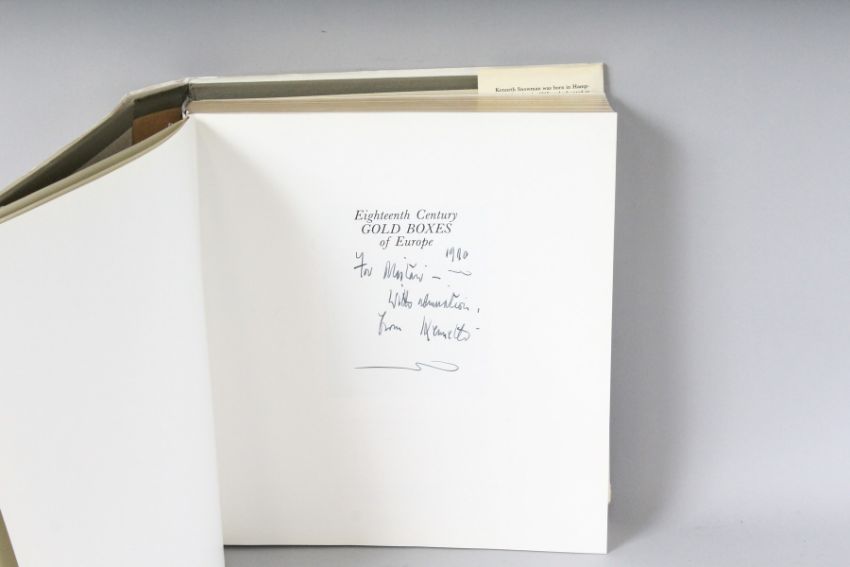 Kenneth Snowman was born in Hamp-
Eighteenth Century
GOLD BOXES
of Europe
1990
For Alistair —
With admiration,
from Kenneth